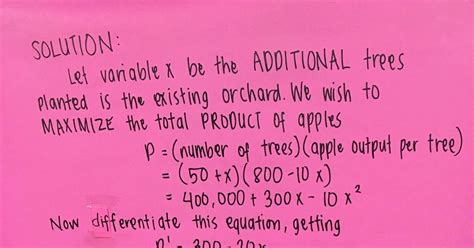 SOLUTION:
Let variable x be the ADDITIONAL trees
planted is the existing orchard. We wish to
MAXIMIZE the total PRODUCT of apples
P = (number of trees)(apple output per tree)
= (50 + x)(800 - 10 x)
= 400,000 + 300 x - 10 x²
Now differentiate this equation, getting
P' = 300 - 20x